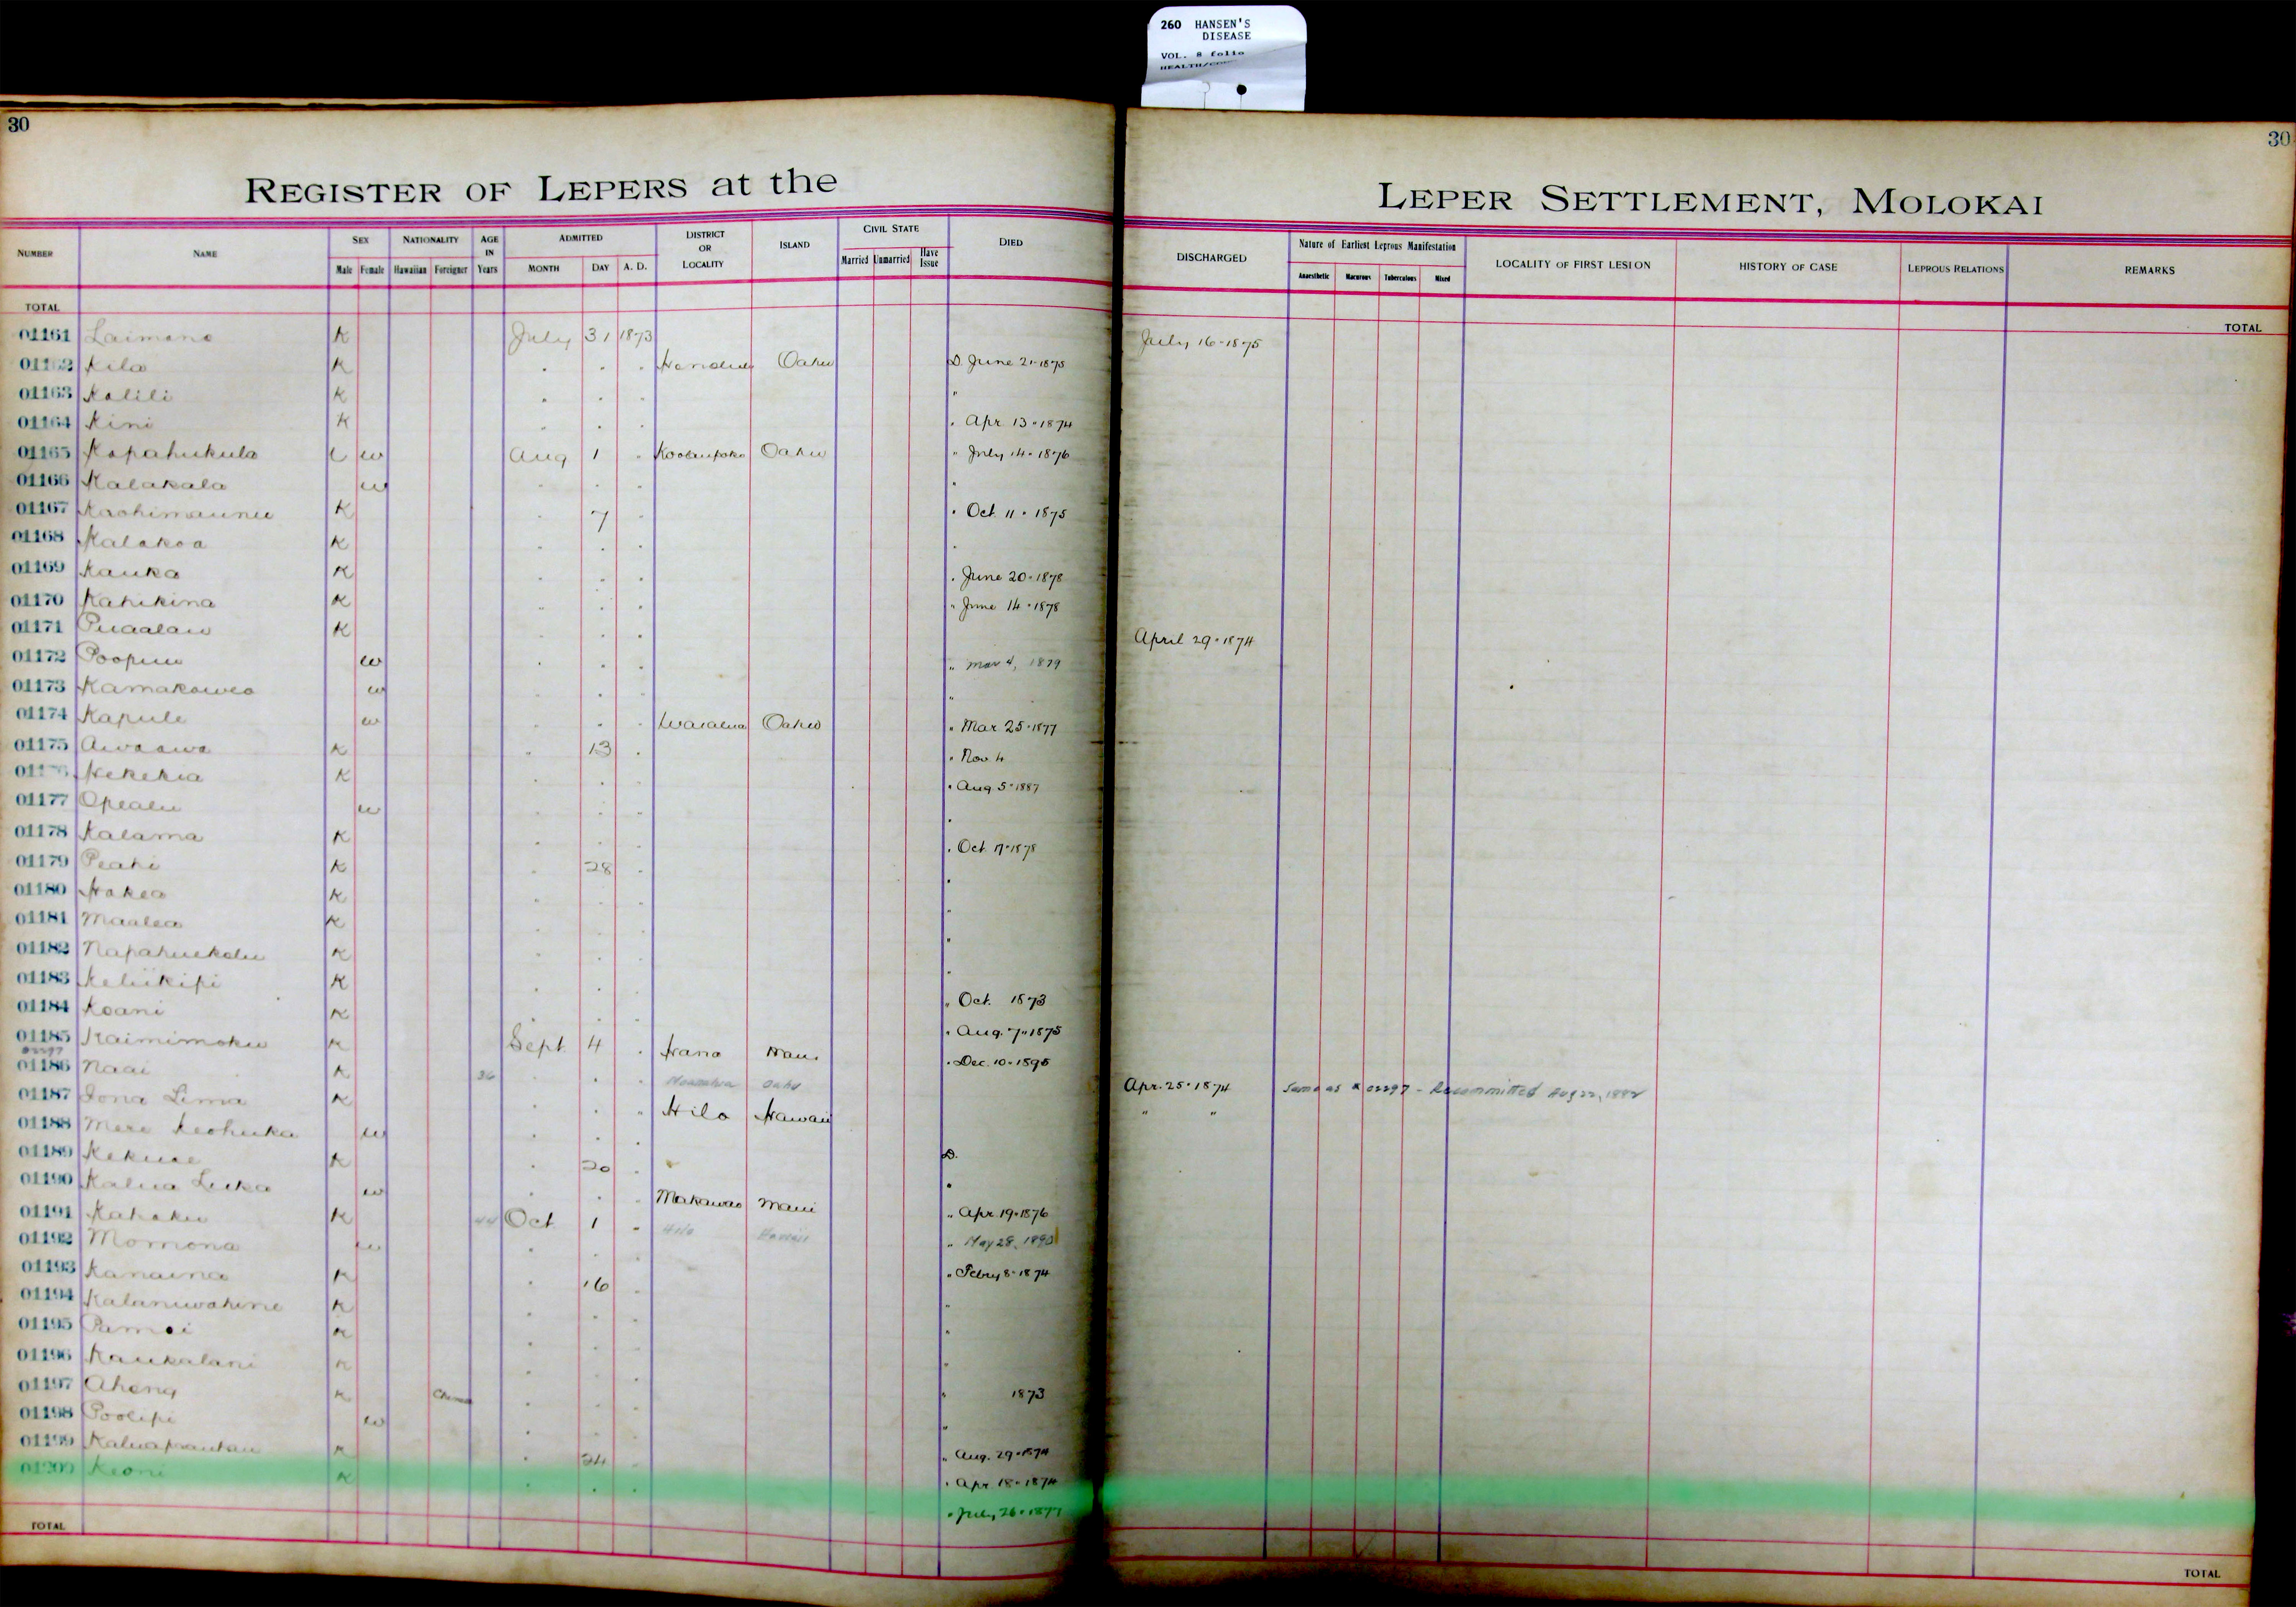 260 HANSEN'S
DISEASE
VOL. 8 folio
30
30
REGISTER OF LEPERS at the
LEPER SETTLEMENT, MOLOKAI
NUMBER NAME SEX Male Female NATIONALITY Hawaiian Foreigner AGE IN Years ADMITTED MONTH DAY A. D. DISTRICT OR LOCALITY ISLAND CIVIL STATE Married Unmarried Have Issue DIED
DISCHARGED Nature of Earliest Leprous Manifestation Anaesthetic Macurous Tuberculous Mixed LOCALITY OF FIRST LESION HISTORY OF CASE LEPROUS RELATIONS REMARKS
TOTAL
TOTAL
01161 Laimana K July 31 1873 July 16-1875
Kila K . . . Honolulu Oahu D. June 21-1875
01163 Kalili K . . . "
01164 Kini K . . . . Apr. 13-1874
01165 Kapahukula w Aug 1 . Koolaupoko Oahu " July 14-1876
01166 Kalakala w . . . "
01167 K . 7 . . Oct. 11-1875
01168 Kalakoa K . . . .
01169 Kauka K . . . . June 20-1878
01170 Kahikina K . . . " June 14-1878
01171 Puaalau K . . . April 29-1874
01172 w . . . " Mar 4, 1879
01173 w . . . "
01174 Kapule w . . . Waialua Oahu " Mar. 25-1877
01175 Awaawa K . 13 . " Nov. 4
Kekekia K . . . . Aug 5-1887
01177 w . . . .
01178 Kalama K . . . . Oct. 17-1878
01179 Peahi K . 28 . .
01180 Hakea K . . . "
01181 Maalea K . . . "
01182 Napahuekolu K . . . "
01183 Keliikipi K . . . " Oct. 1873
01184 Koani K . . . " Aug. 7-1875
01185 Kaimimoku K Sept. 4 . Hana Maui . Dec. 10-1895
01186 Naai K 36 . . . Oahu Apr. 25-1874 Same as # 02297 - Recommitted Aug 22, 1882
01187 Iona Lima K . . " Hilo Hawaii " "
01188 Mere Keohuka w . . . D.
01189 Kekuae K . 20 . .
01190 Kalua Luka w . . . Makawao Maui " Apr. 19-1876
01191 Kahaku K 44 Oct 1 " Hilo Hawaii " May 28, 1890
01192 Momona w . . . " Febry 8-1874
01193 Kanaina K . 16 . "
01194 Kalaniwahine K . . . "
01195 K . . . "
01196 Kaukalani K . . . " 1873
01197 Aheng K . . . "
01198 Poolipi w . . . " Aug. 29-1874
01199 K . 24 . . Apr. 18-1874
01200 Keoni K . . . " July 26-1877
TOTAL
TOTAL